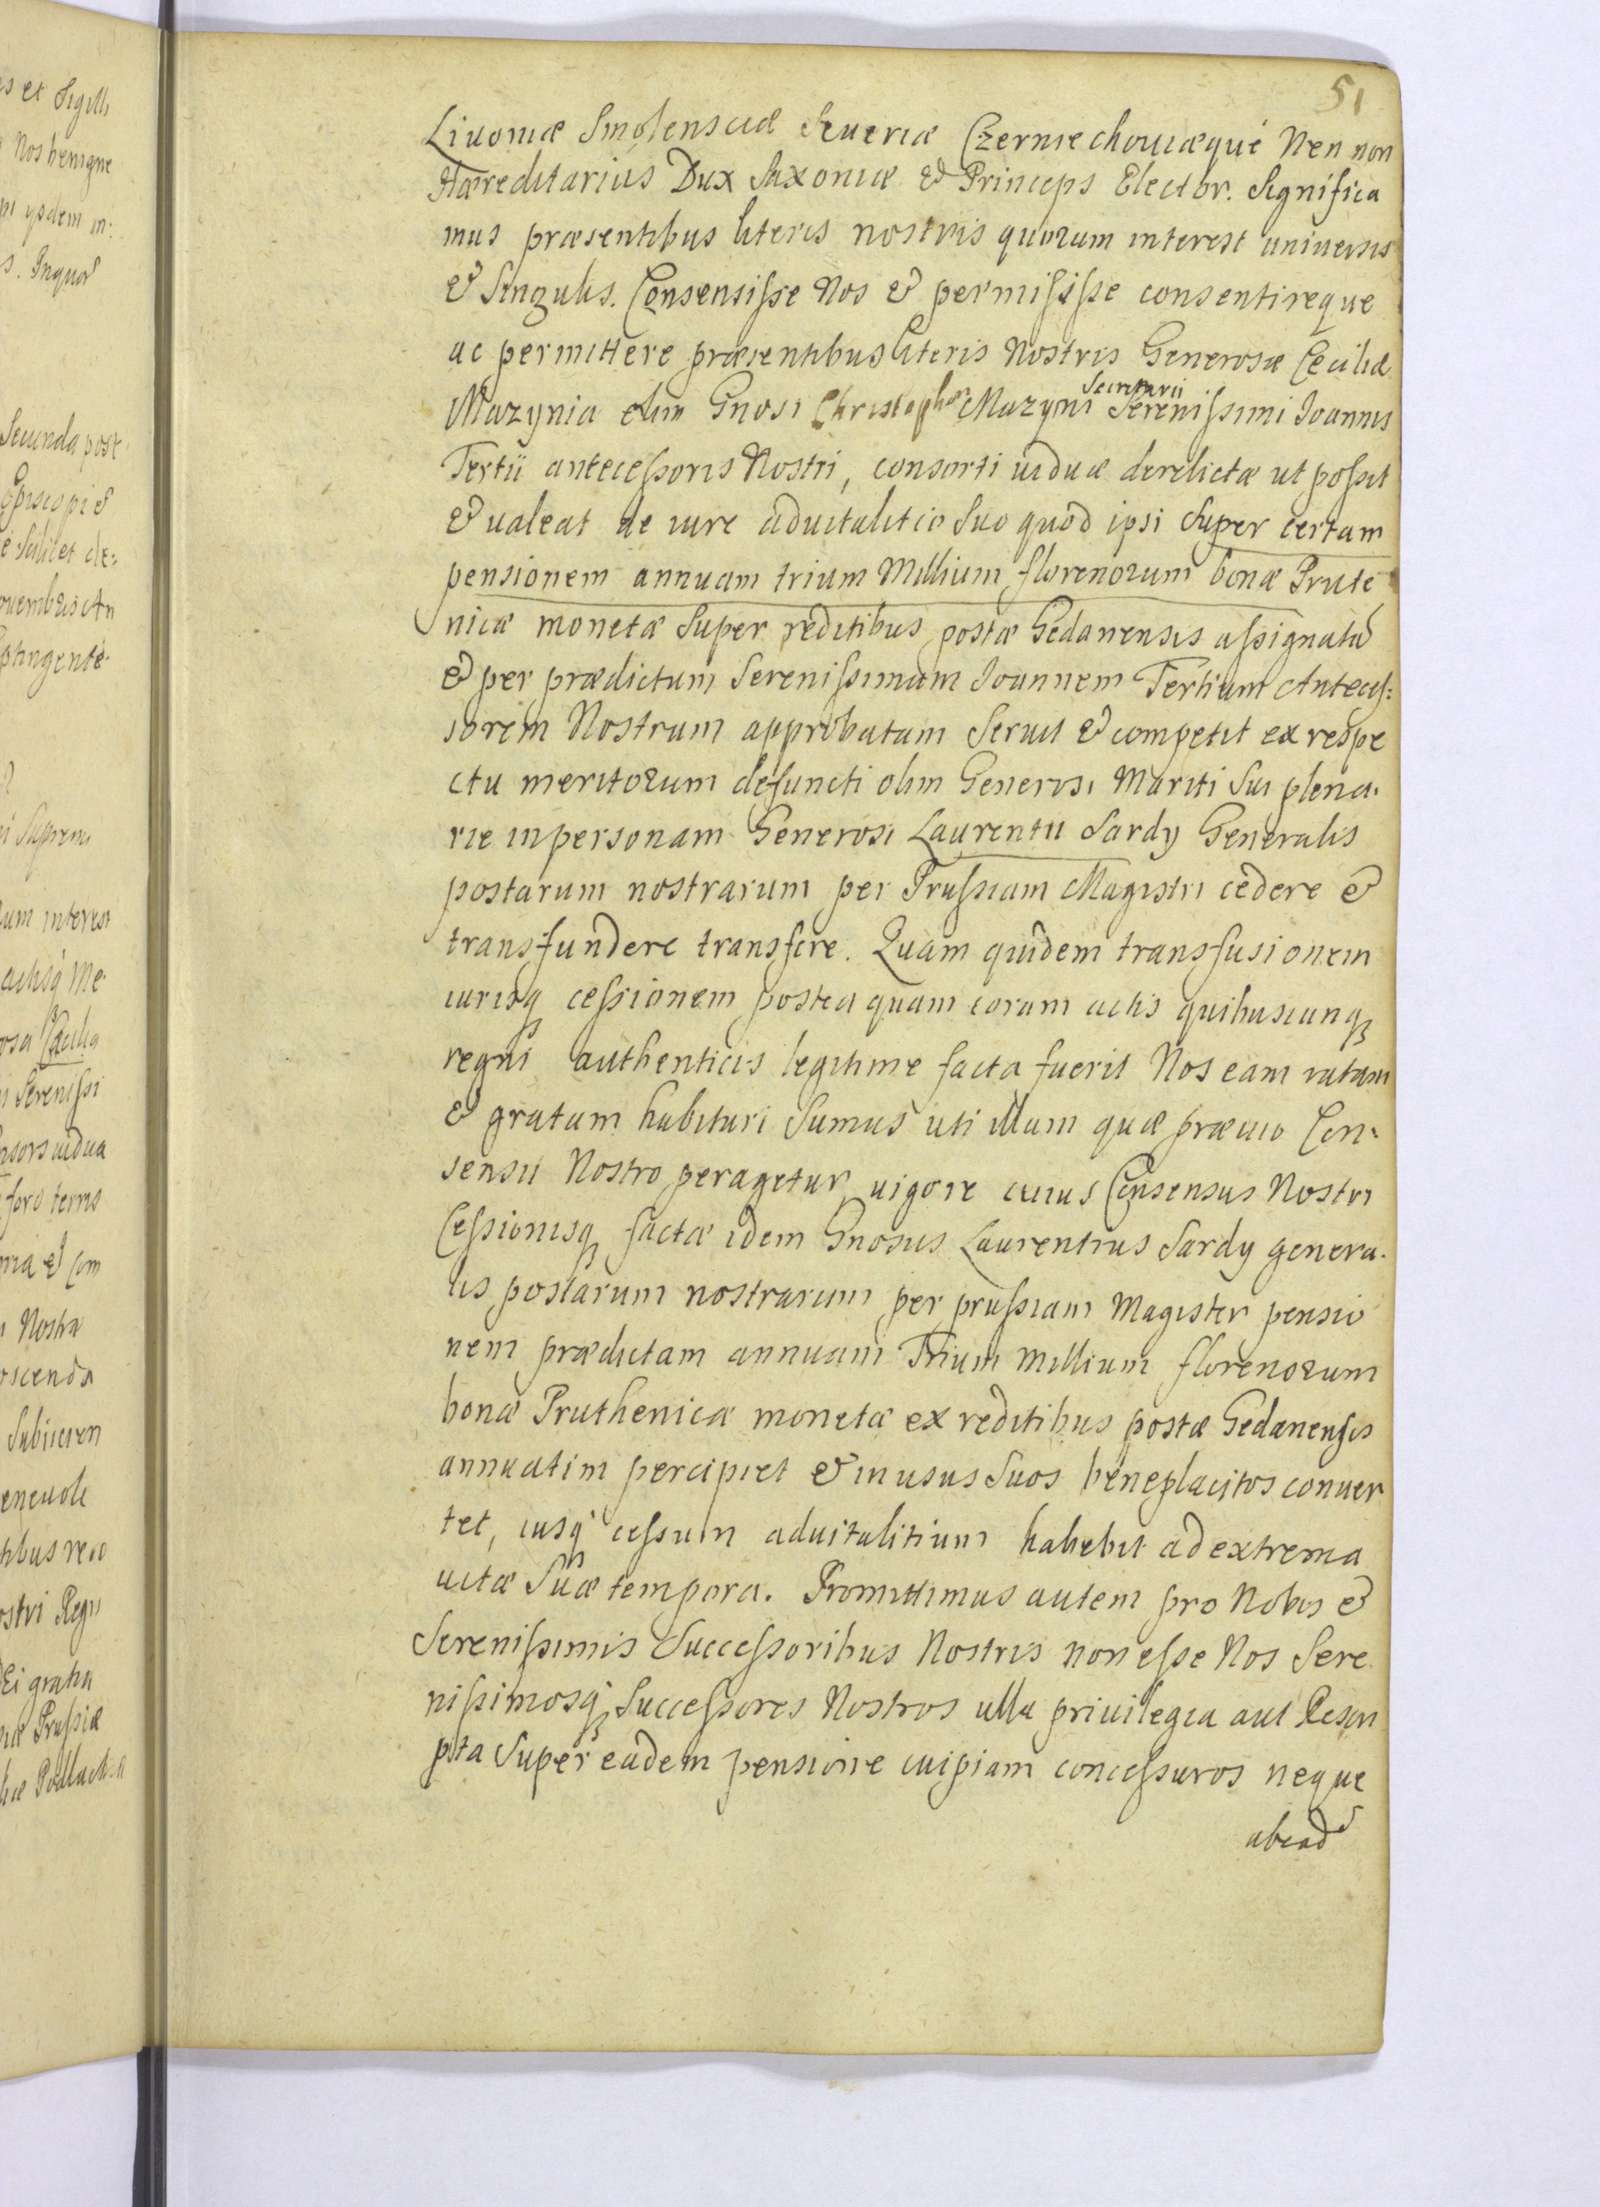 51
Livoniæ Smolensciæ Severiæ Czerniechoviæque Nen non
Hæreditarius Dux Saxoniæ & Princeps Elector. Significa
mus præsentibus literis nostris quorum interest universis
& Singulis. Consensisse Nos & permisisse consentireque
ac permittere præsentibus literis Nostris Generosæ Cecilia
Secretarii
Mazynia olim Gnosi Christophori Mazyni Serenissimi Joannis
Tertii antecessoris Nostri, consorti viduæ derelictæ ut possit
& valeat de iure advitalitio Suo quod ipsi Super certam
pensionem annuam trium Millium florenorum bonæ Prute
nicæ monetæ Super reditibus postæ Gedanensis assignata
& per prædictum Serenissimum Joannem Tertium Anteces:
sorem Nostrum approbatam Servit & competit ex respe
ctu meritorum defuncti olim Generosi Mariti Sui plena.
rie in personam Generosi Laurentii Sardy Generalis
postarum nostrarum per Prussiam Magistri cedere &
transfundere transfere. Quam quidem transfusionem
iurisq cessionem postea quam coram actis quibuscunq
regni authenticis legitime facta fuerit Nos eam ratam
& gratam habituri Sumus uti illam quæ prævio Con-
sensu Nostro peragetur vigore cuius Consensus Nostri
Cessionisq factæ idem Gnosus Laurentius Sardy genera.
lis postarum nostrarum per prussiam Magister pensio
nem prædictam annuam Trium Millium florenorum
bonæ Pruthenicæ monetæ ex reditibus postæ Gedanensis
annuatim percipiet & in usus Suos beneplacitos conver
tet, iusq cessum advitalitium habebit ad extrema
vitæ Suæ tempora. Promittimus autem pro Nobis &
Serenissimis Successoribus Nostris non esse Nos Sere
nissimosq Successores Nostros ulla privilegia aut Rescri
pta Super eadem pensione cuipiam concessuros neque
ab ead